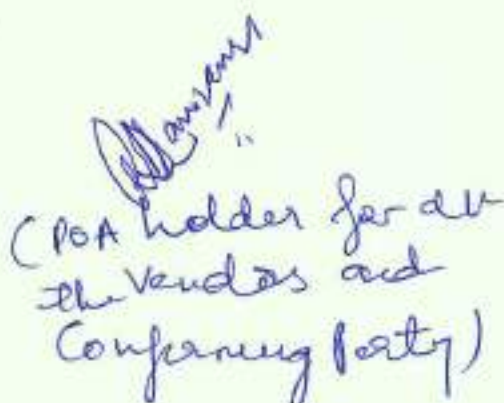 (POA holder for all
the Vendors and
Confirming Party)